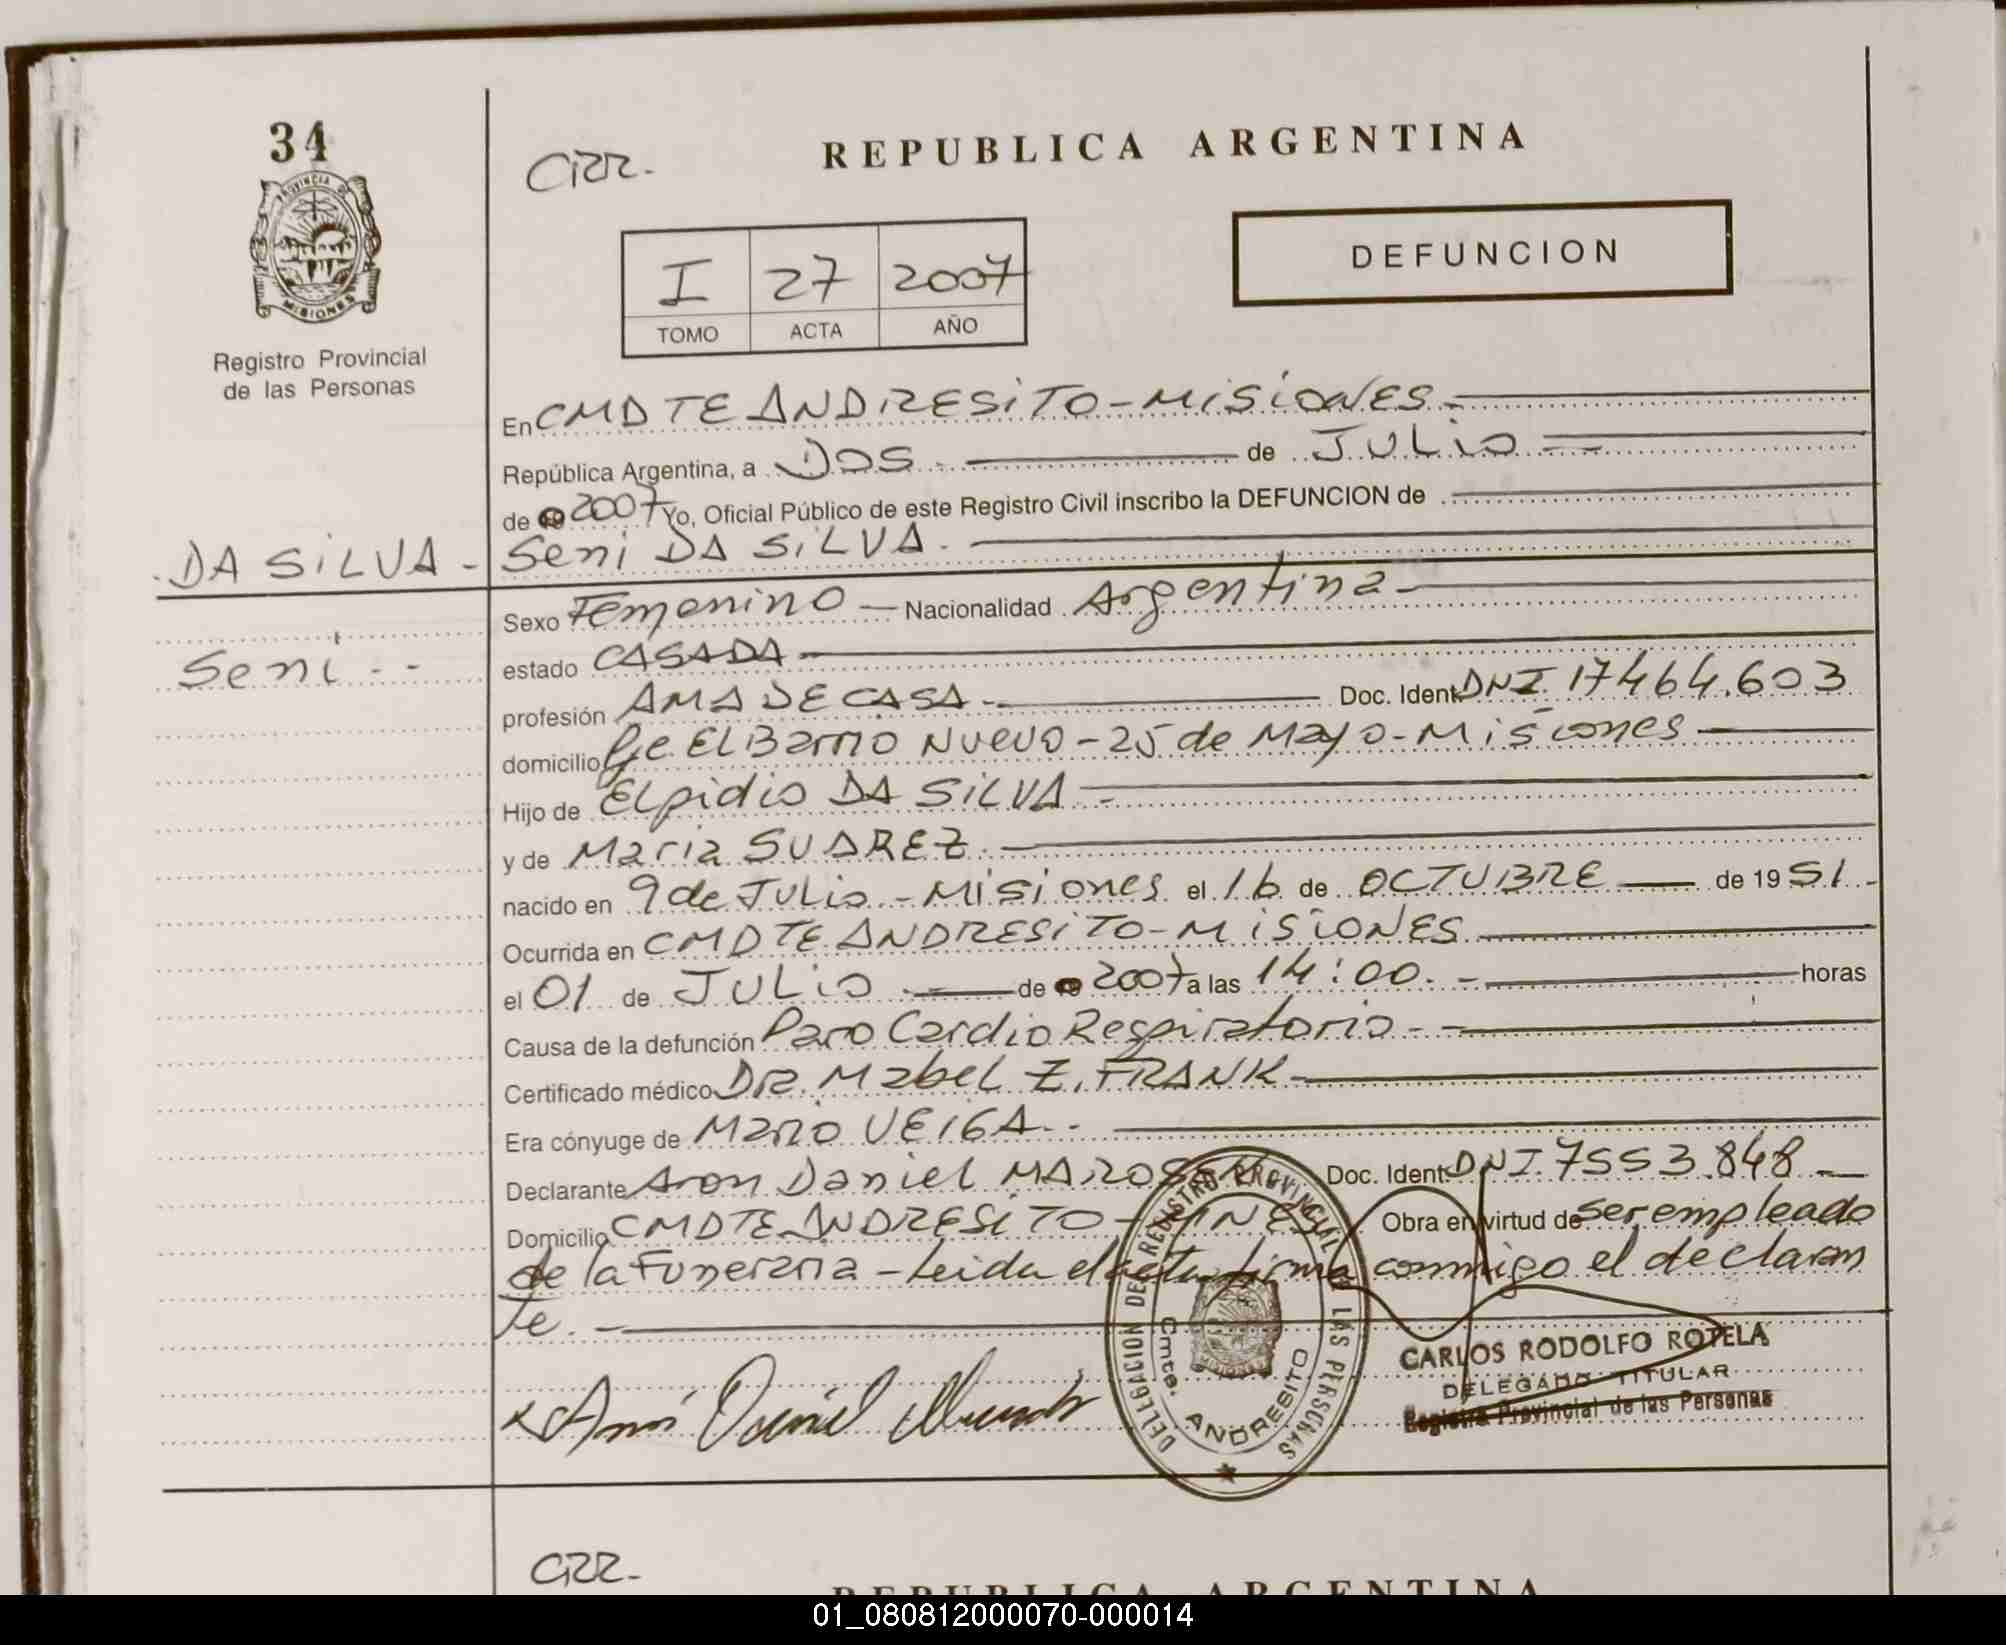 34
CIRR.
REPUBLICA ARGENTINA
PROVINCIA DE
MISIONES
Registro Provincial
de las Personas
I 27 2007
TOMO ACTA AÑO
DEFUNCION
En CMDTE ANDRESITO - MISIONES -
República Argentina, a DOS de JULIO
de 2007 yo, Oficial Público de este Registro Civil inscribo la DEFUNCION de
DA SILVA - Seni DA SILVA.
Sexo Femenino - Nacionalidad Argentina -
Seni - - estado CASADA
profesión AMA DE CASA Doc. Ident. DNI. 17464.603
domicilio Pje El Barrio Nuevo - 25 de Mayo - Misiones
Hijo de Elpidio DA SILVA -
y de Maria SUAREZ.
nacido en 9 de JULIO - Misiones el 16 de OCTUBRE de 1951.
Ocurrida en CMDTE ANDRESITO - MISIONES
el 01 de JULIO de 2007 a las 14:00. - horas
Causa de la defunción Paro Cardio Respiratorio - -
Certificado médico DRA. Mabel Z. FRANK -
Era cónyuge de Mario VEIGA - -
Declarante Aron Daniel Doc. Ident. DNI. 7553.848 -
Domicilio CMDTE ANDRESITO - MNES Obra en virtud de ser empleado
de la Funeraria - Leida el acta firma conmigo el declaran
te. -
DELEGACION DE REGISTRO PROVINCIAL DE LAS PERSONAS
Cmte. ANDRESITO
MISIONES
CARLOS RODOLFO ROTELA
DELEGADO TITULAR
Registro Provincial de las Personas
Daniel
CIRR.
REPUBLICA ARGENTINA
01_080812000070-000014